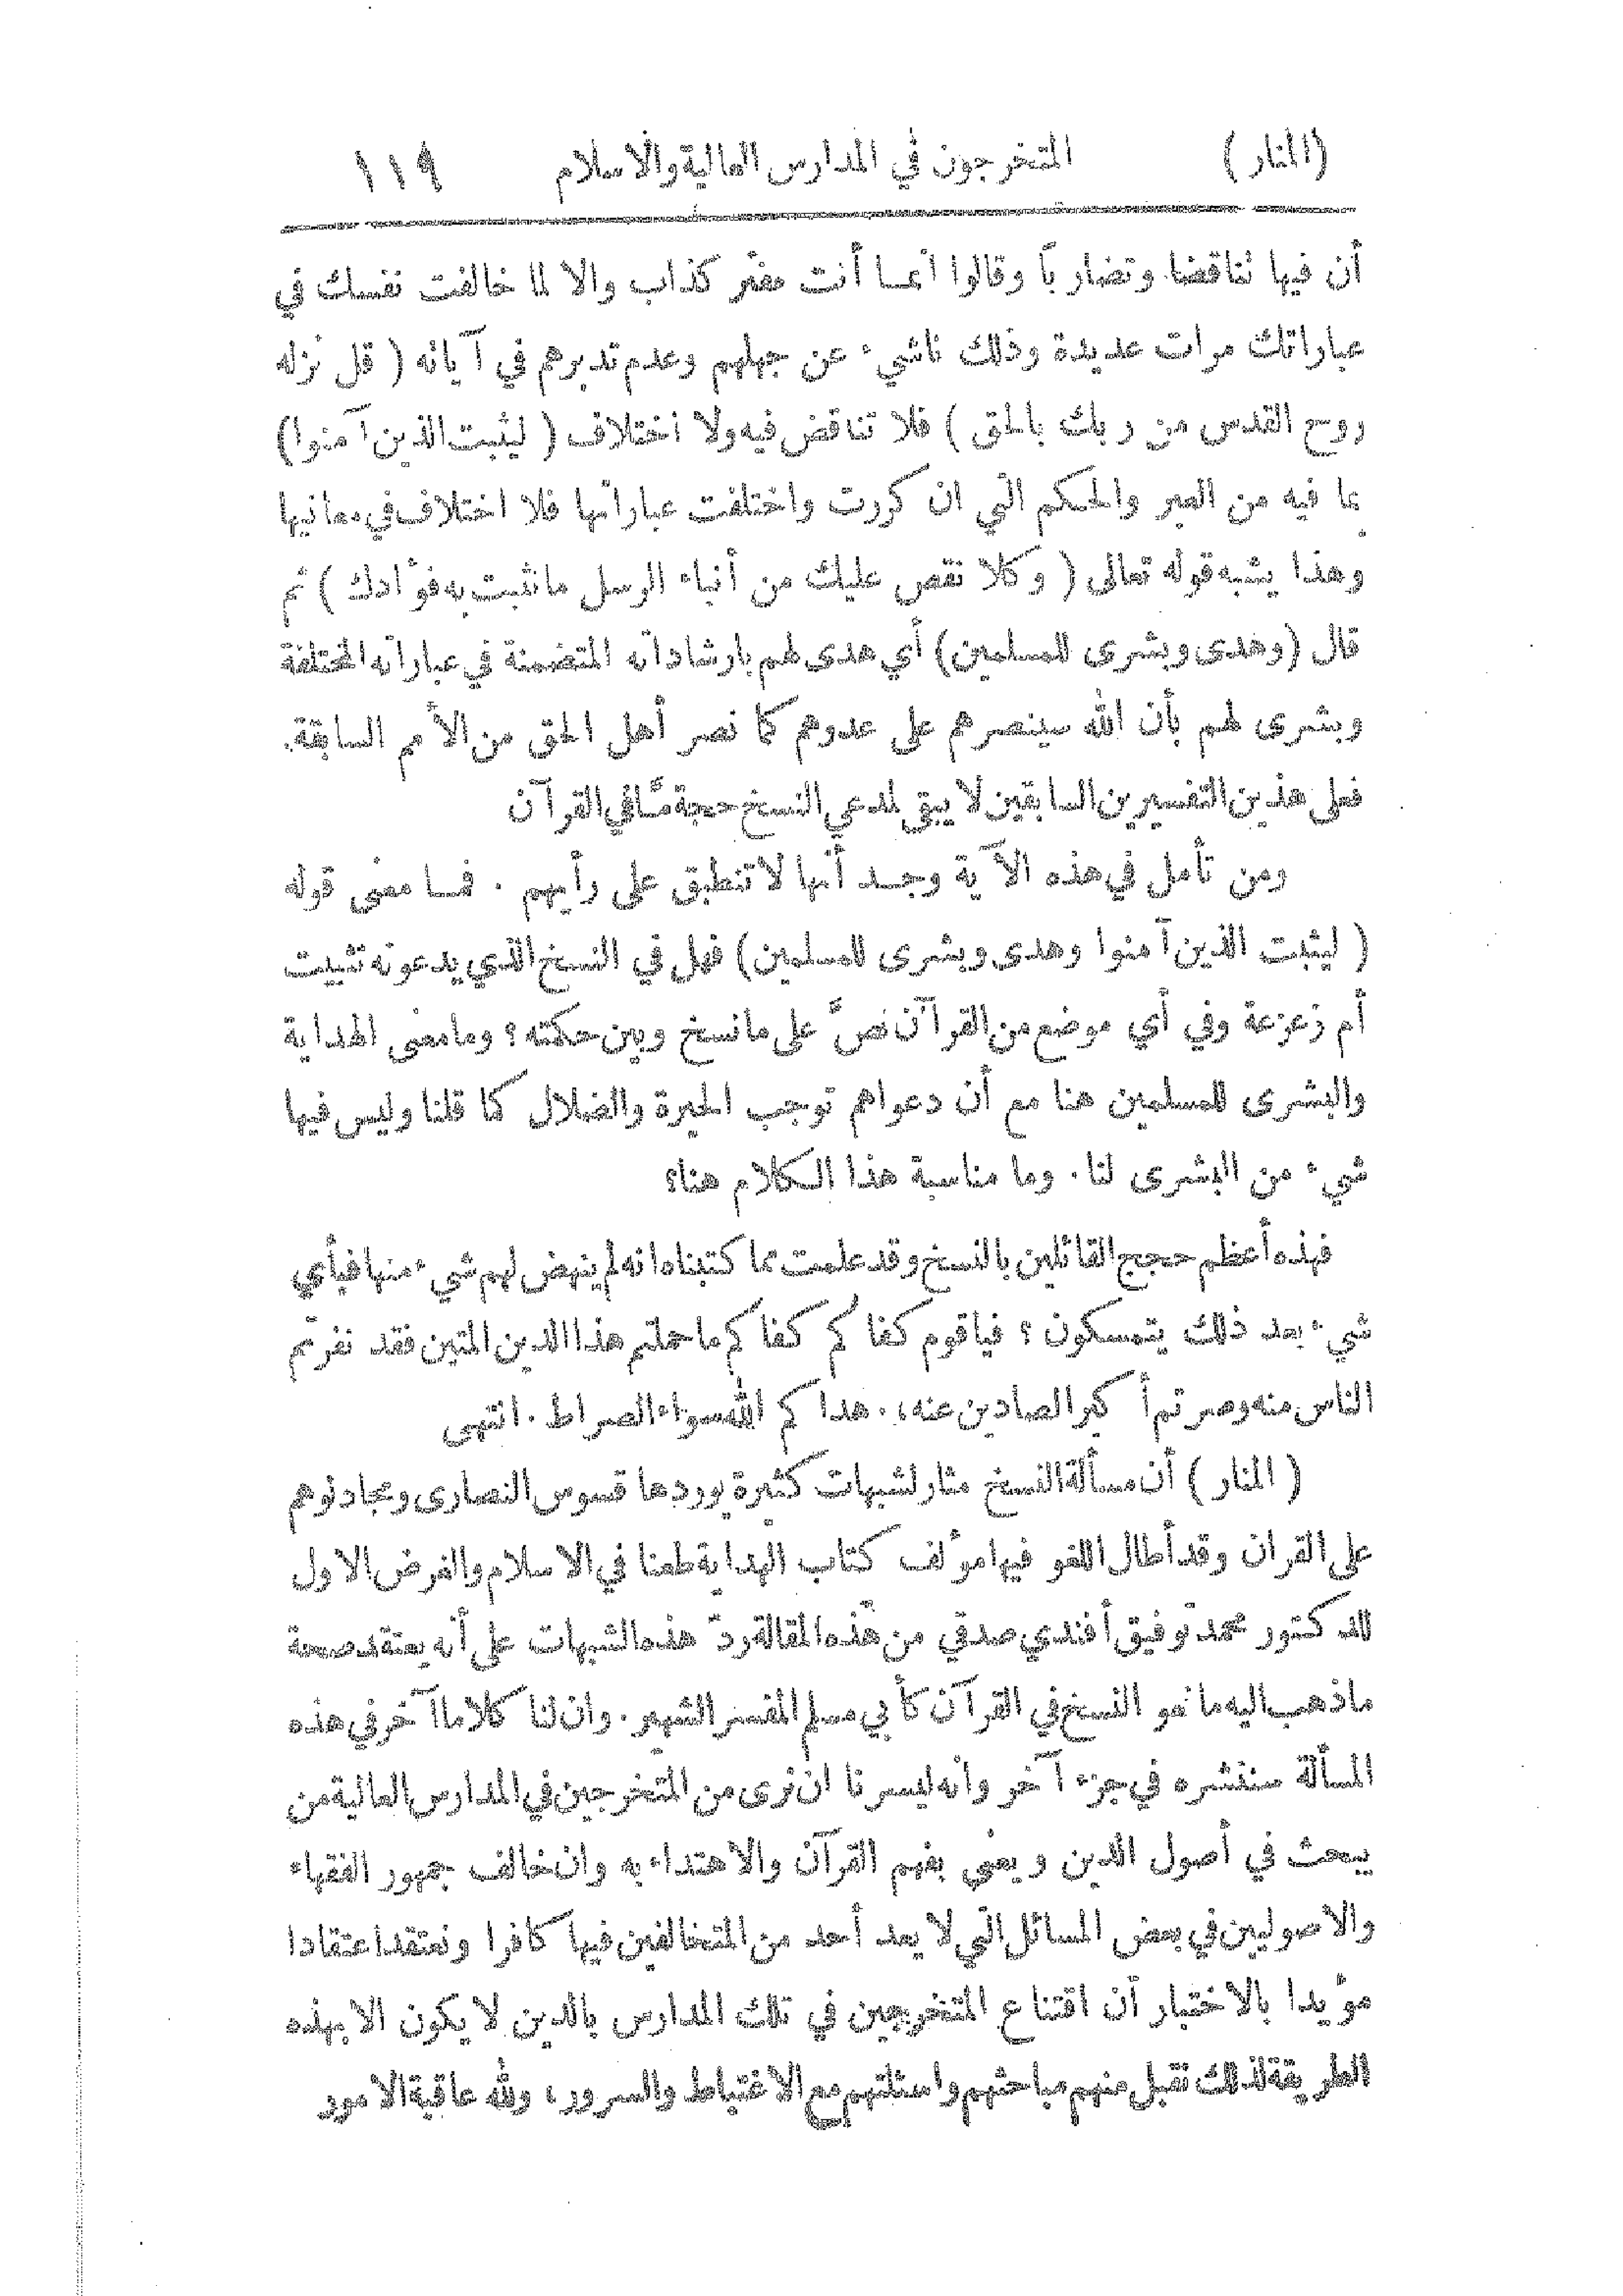 (المنار) المتخرجون في المدارس العالية والاسلام ١١٩
أن فيها تناقضا وتضاربًا وقالوا انما أنت مفتر كذاب والا لما خالفت نفسك في
عباراتك مرات عديدة وذلك ناشيء عن جهلهم وعدم تدبرهم في آياته ( قل نزله
روح القدس من ربك بالحق ) فلا تناقض فيه ولا اختلاف ( ليثبت الذين آمنوا)
بما فيه من العبر والحكم التي ان كررت واختلفت عباراتها فلا اختلاف في معانيها
وهذا يشبه قوله تعالى ( وكلا نقص عليك من أنباء الرسل ما نثبت به فؤادك ) ثم
قال (وهدى وبشرى للمسلمين) أي هدى لهم بارشاداته المتضمنة في عباراته المختلفة
وبشرى لهم بأن الله سينصرهم على عدوهم كما نصر أهل الحق من الأمم السابقة.
فعلى هذين التفسيرين السابقين لا يبقى لمدعي النسخ حجة مّا في القرآن
ومن تأمل في هذه الآية وجد أنها لا تنطبق على رأيهم . فما معنى قوله
( ليثبت الذين آمنوا وهدى وبشرى للمسلمين) فهل في النسخ الذي يدعونه تثبيت
أم زعزعة وفي أي موضع من القرآن نصَّ على ما نسخ وبين حكمته ؟ وما معنى الهداية
والبشرى للمسلمين هنا مع أن دعواهم توجب الحيرة والضلال كما قلنا وليس فيها
شيء من البشرى لنا . وما مناسبة هذا الكلام هنا؟
فهذه أعظم حجج القائلين بالنسخ وقد علمت مما كتبناه انه لم ينهض لهم شيء منها فبأي
شيء بعد ذلك يتمسكون ؟ فيا قوم كفاكم كفاكم ما حملتم هذا الدين المتين فقد نفرتم
الناس منه وصرتم أكبر الصادين عنه ،. هداكم الله سواء الصراط . انتهى
( المنار ) أن مسألة النسخ مثار لشبهات كثيرة يوردها قسوس النصارى ومجادلوهم
على القران وقد أطال اللغو فيها مؤلف كتاب الهداية طعنا في الاسلام والغرض الاول
للدكتور محمد توفيق أفندي صدقي من هذه المقالة ردّ هذه الشبهات على أنه يعتقد صحة
ما ذهب اليه مانعو النسخ في القرآن كأبي مسلم المفسر الشهير . وان لنا كلاما آخر في هذه
المسألة سننشره في جزء آخر وانه ليسرنا ان نرى من المتخرجين في المدارس العالية من
يبحث في أصول الدين ويعنى بفهم القرآن والاهتداء به وان خالف جمهور الفقهاء
والاصوليين في بعض المسائل التي لا يعد أحد من المتخالفين فيها كافرا ونعتقد اعتقادا
مؤيدا بالاختبار أن اقتناع المتخرجين في تلك المدارس بالدين لا يكون الا بهذه
الطريقة لذلك نتقبل منهم مباحثهم واسئلتهم مع الاغتباط والسرور ، ولله عاقبة الامور